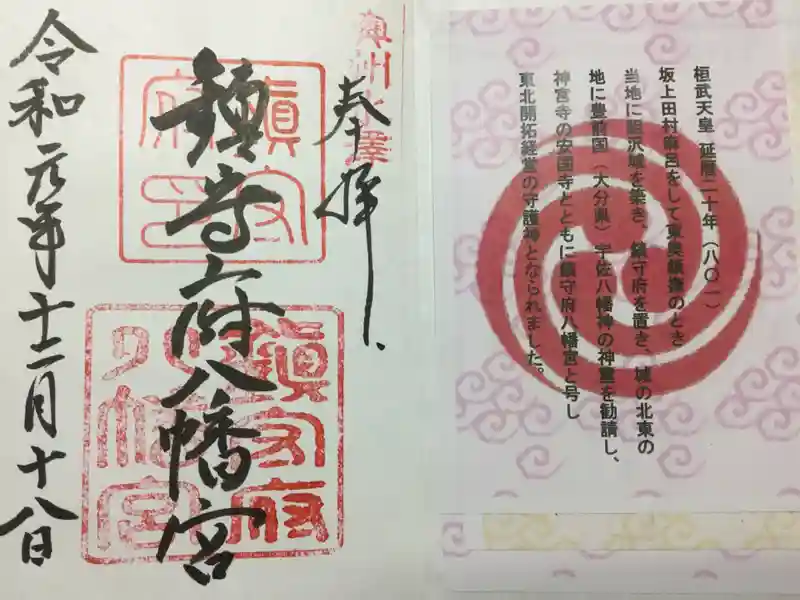 桓武天皇 延暦二十年(八〇一)
坂上田村麻呂をして東奥鎮撫のとき
当地に胆沢城を築き、鎮守府を置き、城の北東の
地に豊前国(大分県)宇佐八幡神の神霊を勧請し、
神宮寺の安国寺とともに鎮守府八幡宮と号し
東北開拓経営の守護神となられました。
奥州水澤
奉拝
鎮守府八幡宮
鎮守府印
鎮守府八幡宮
令和元年十二月十八日